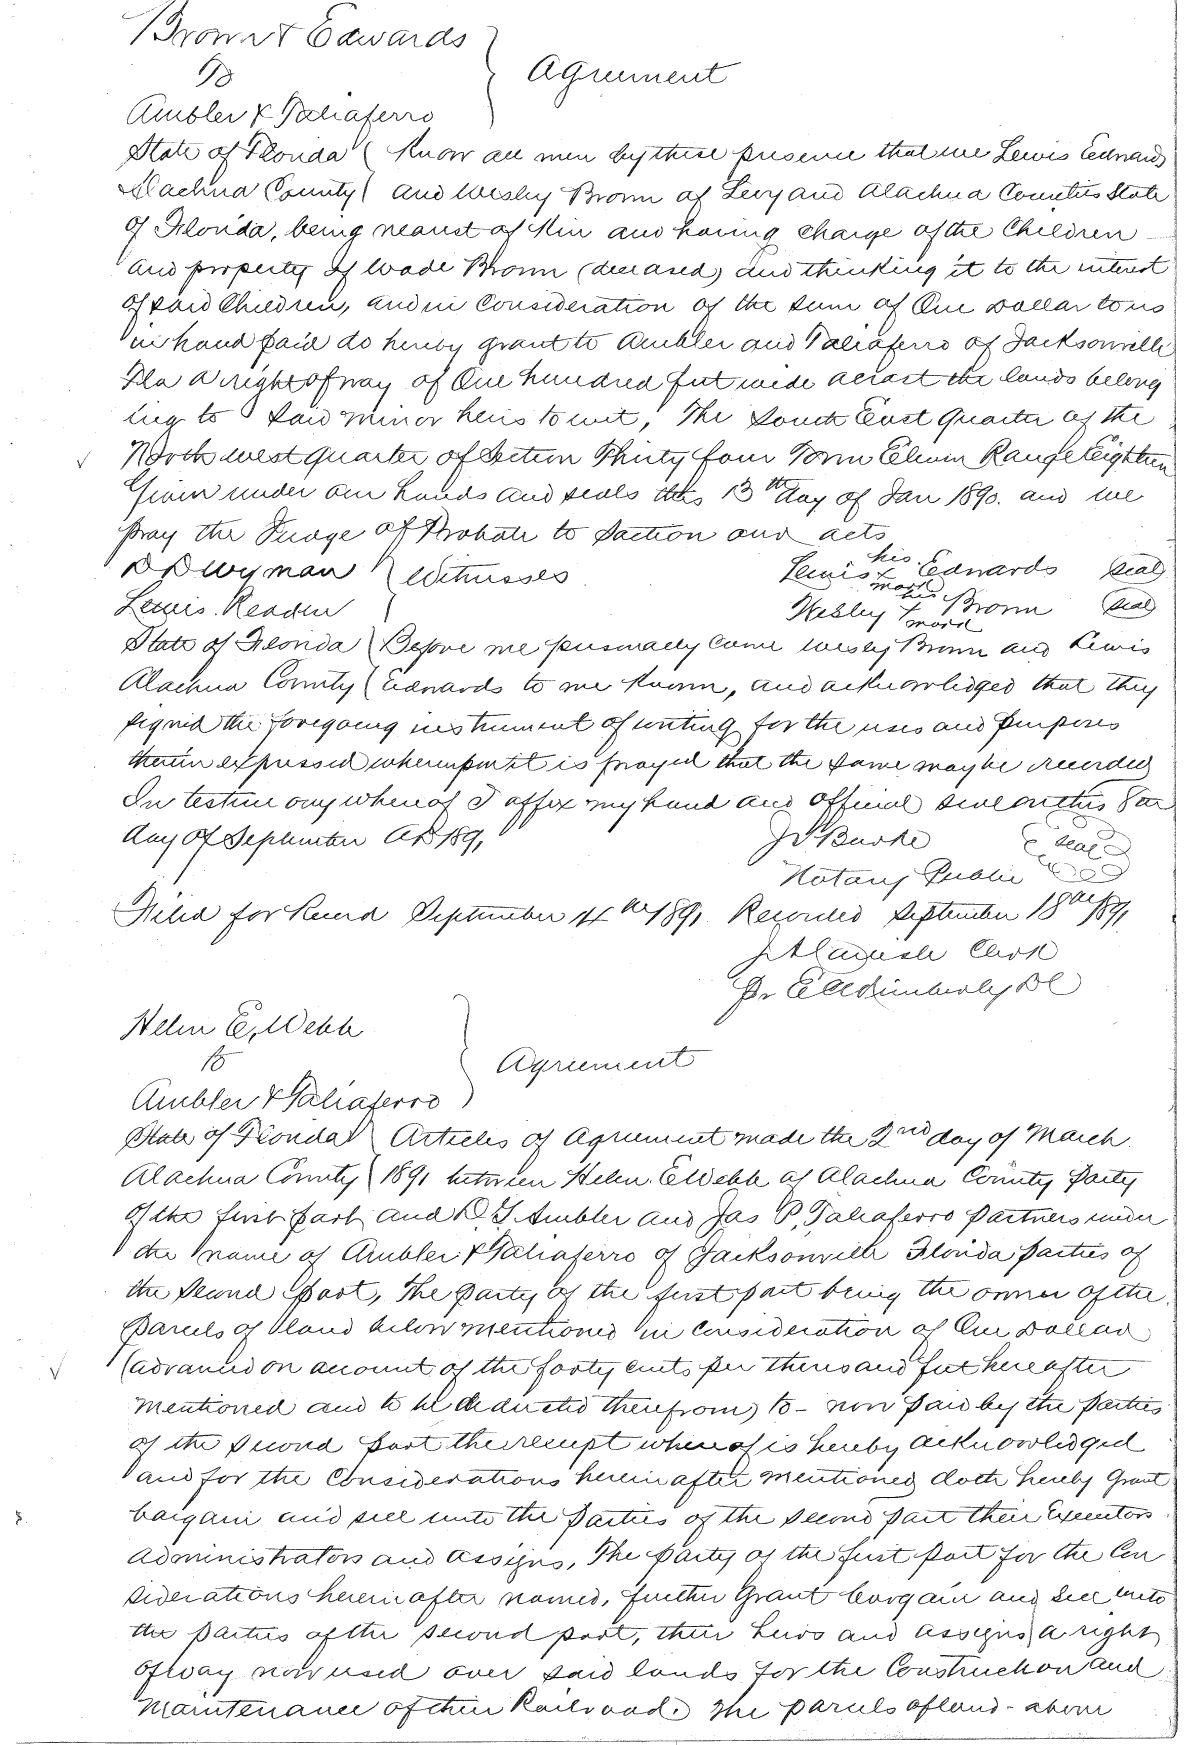 Brown & Edwards
To
Agreement
Ambler & Taliaferro
State of Florida ( Know all men by these presence that we Lewis Edwards
Alachua County ( and Wesley Brown of Levy and Alachua Counties State
of Florida, being nearest of Kin and having charge of the Children
and property of Wade Brown (deceased) and thinking it to the interest
of said Children, and in Consideration of the sum of One Dollar to us
in hand paid do hereby grant to Ambler and Taliaferro of Jacksonville
Fla a right of way of One hundred feet wide acrost the lands belong
ing to said minor heirs to wit, The South East Quarter of the
North west quarter of Section Thirty four Town Eleven Range Eighteen
Given under our hands and seals this 13th day of Jan 1890. and we
pray the Judge of Probate to Saction our acts
D D Wyman } Witnesses Lewis his x mark Edwards (seal)
Lewis Reader Wesley his x mark Brown (seal)
State of Florida ( Before me personally came Wesley Brown and Lewis
Alachua County ( Edwards to me Known, and acknowledged that they
signed the foregoing instrument of writing for the uses and purposes
therein expressed whereupon it is prayed that the same may be recorded
In testimony whereof I affix my hand and official seal on this
day of September AD 1891
J Burke seal
Notary Public
Filed for Record September 4th 1891. Recorded September 18th 1891
Clerk
Pr Wimberly DC
Helen E. Webb
to
Agreement
Ambler & Taliaferro
State of Florida ( Articles of Agreement made the 2nd day of March
Alachua County ( 1891 between Helen E Webb of Alachua County Party
of the first part and D. G Ambler and Jas P. Taliaferro Partners under
the name of Ambler & Taliaferro of Jacksonville Florida parties of
the Second part, The party of the first part being the owner of the
parcels of land below mentioned in Consideration of One Dollar
(advanced on account of the forty cents per thousand feet hereafter
mentioned and to be deducted therefrom) to - now paid by the parties
of the second part the receipt whereof is hereby acknowledged
and for the Considerations herein after mentioned doth hereby Grant
bargain and sell unto the parties of the second part their Executors
administrators and assigns, The party of the first part for the Con
siderations herein after named, further Grant bargain and sell unto
the parties of the second part, their heirs and assigns a right
of way now used over said lands for the Construction and
maintenance of their Railroad. The parcels of land - above